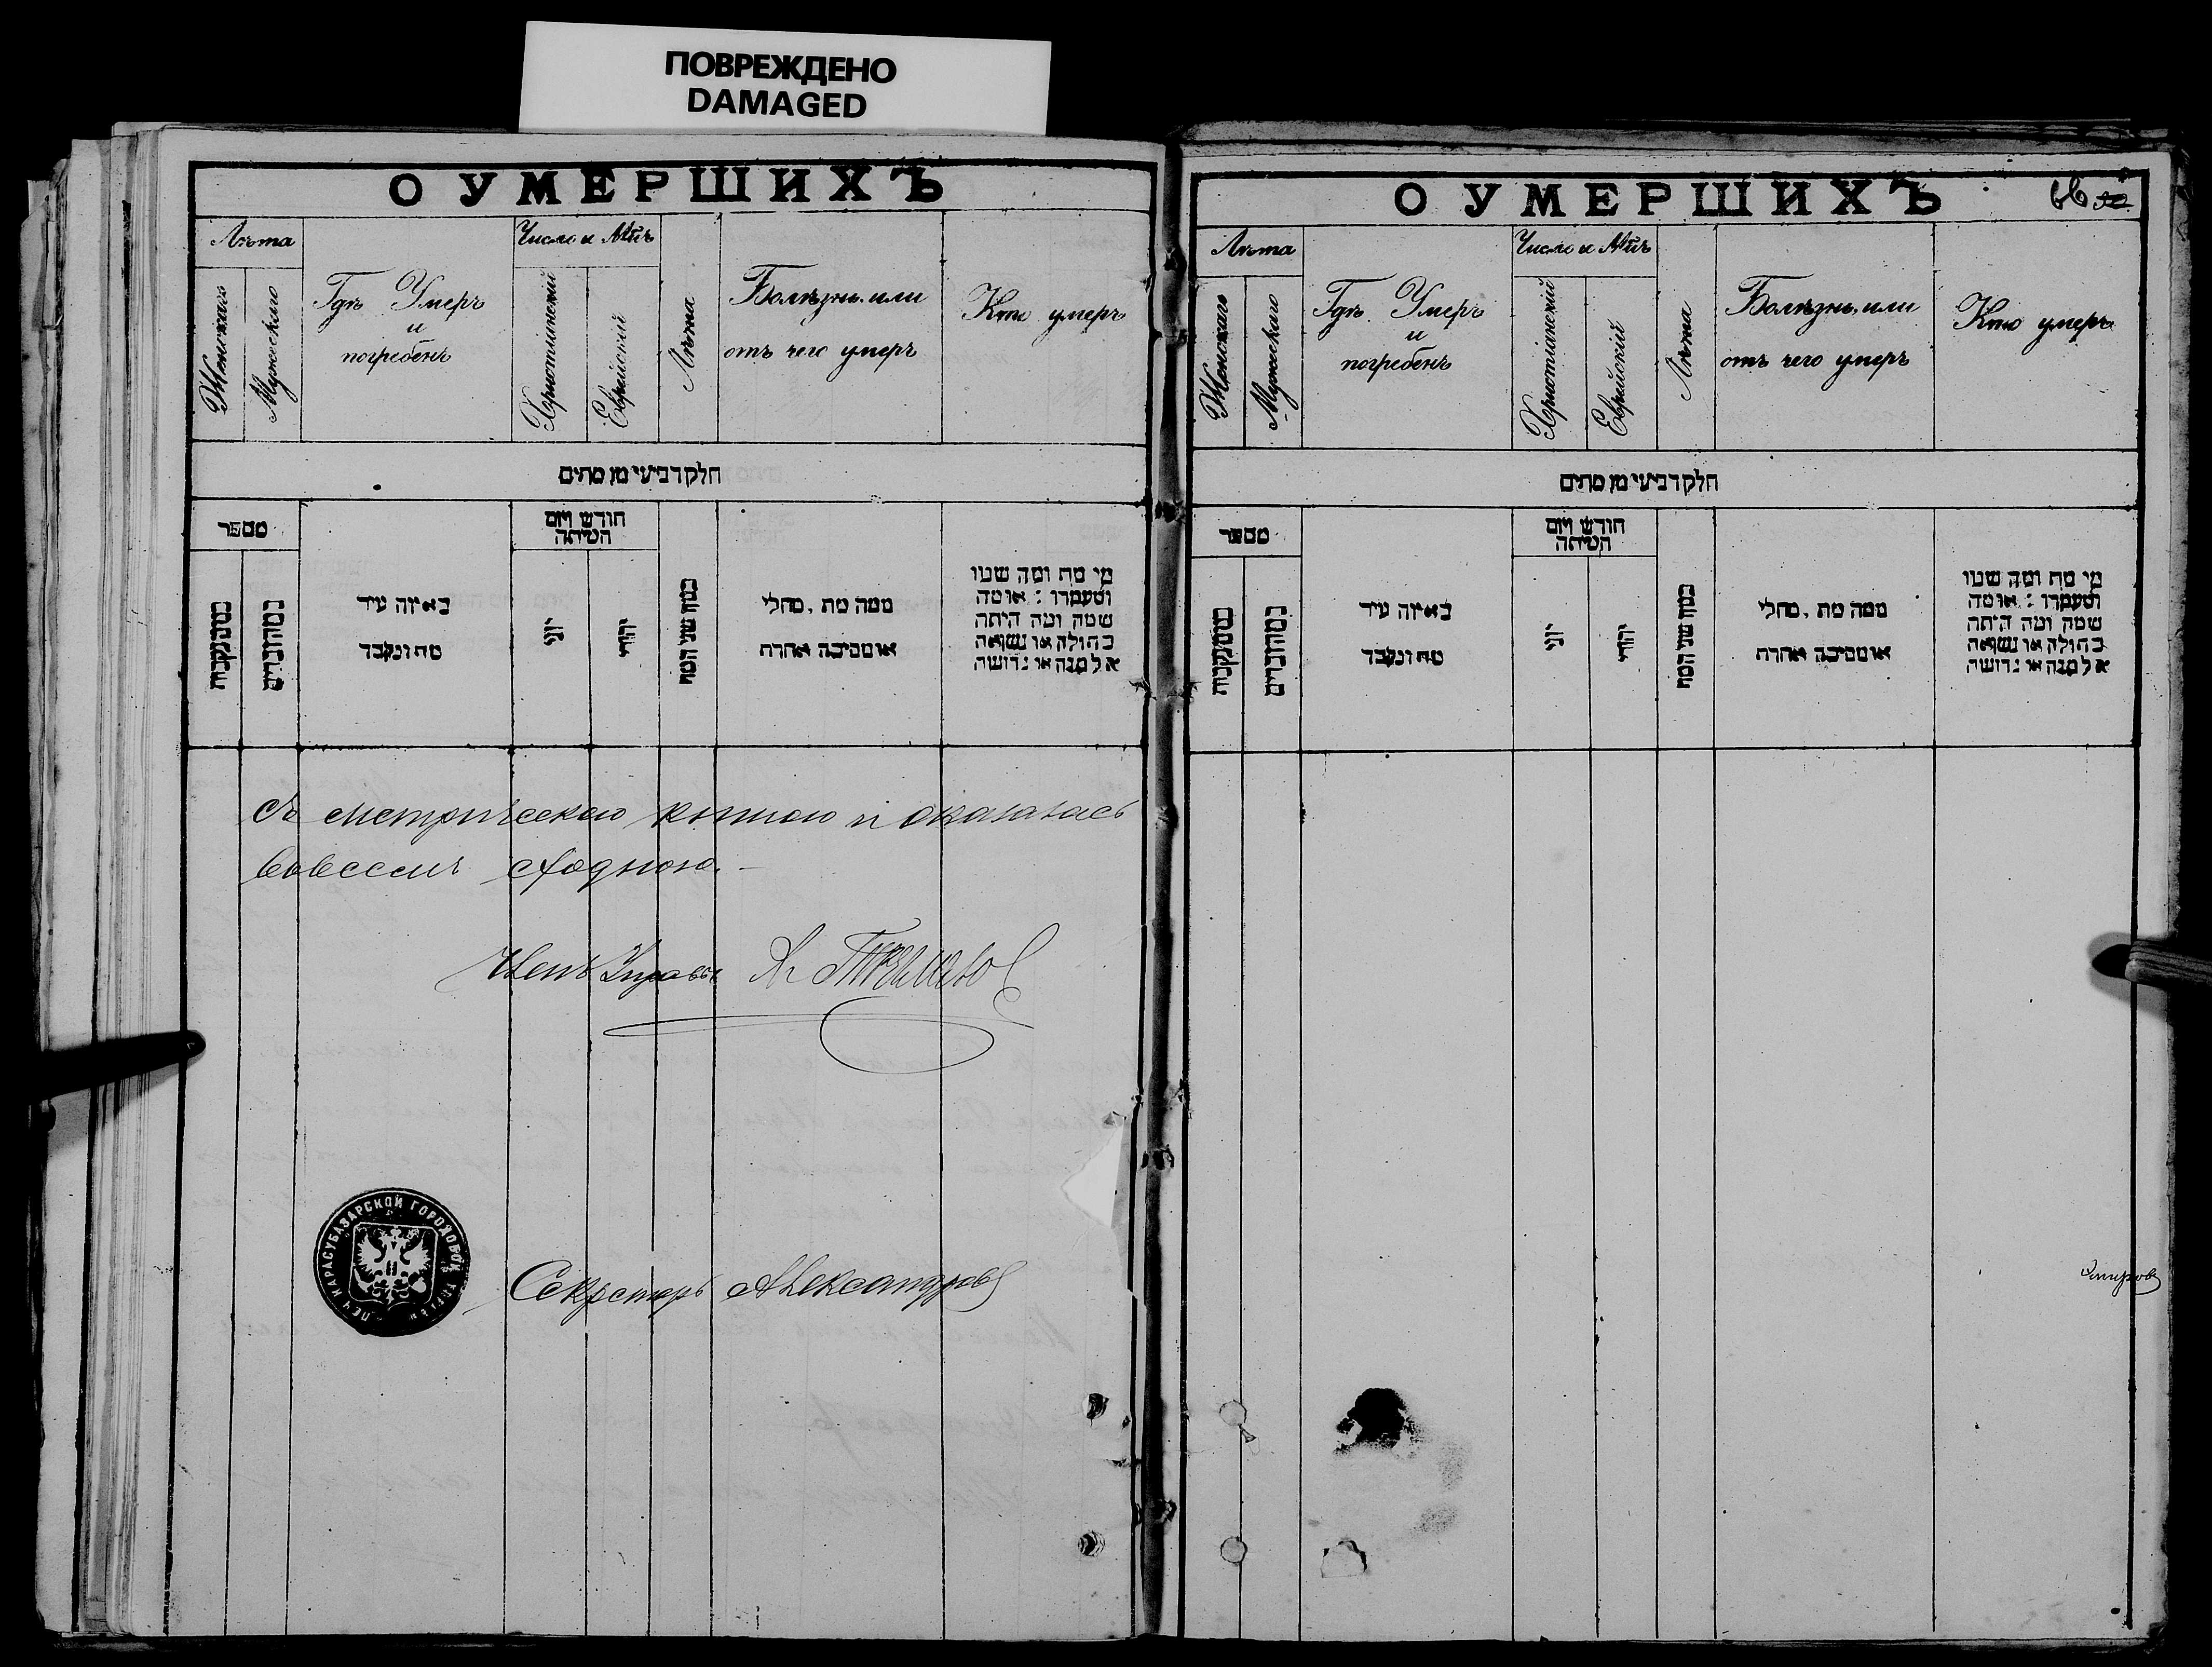 ПОВРЕЖДЕНО
DAMAGED
О УМЕРШИХЪ
Лѣта
Женскаго
Мужескаго
Гдѣ Умеръ
и
погребенъ
Число и Мѣс.
Христіанскій
Еврейскій
Лѣта
Болѣзнь, или
отъ чего умеръ
Кто умеръ
חלק רביעי מן מתים
מספר
במה נקבות
במה זכרים
באיזה עיר
מת ונקבר
חודש ויום
המיתה
יוני
יהודי
כמה שני המת
ממה מת, מחלי
או מסיבה אחרת
מי מת ומה שמו
ומעמדו : או מה
שמה ומה היתה
בתולה או נשואה
אלמנה או גרושה
съ метрическою книгою и оказалась
вовсемъ сходною. —
Членъ Управы
Секретарь Александровъ
КАРАСУБАЗАРСКОЙ ГОРОДОВОЙ
О УМЕРШИХЪ
66
Лѣта
Женскаго
Мужескаго
Гдѣ Умеръ
и
погребенъ
Число и Мѣс.
Христіанскій
Еврейскій
Лѣта
Болѣзнь, или
отъ чего умеръ
Кто умеръ
חלק רביעי מן מתים
מספר
במה נקבות
במה זכרים
באיזה עיר
מת ונקבר
חודש ויום
המיתה
יוני
יהודי
כמה שני המת
ממה מת, מחלי
או מסיבה אחרת
מי מת ומה שמו
ומעמדו : או מה
שמה ומה היתה
בתולה או נשואה
אלמנה או גרושה